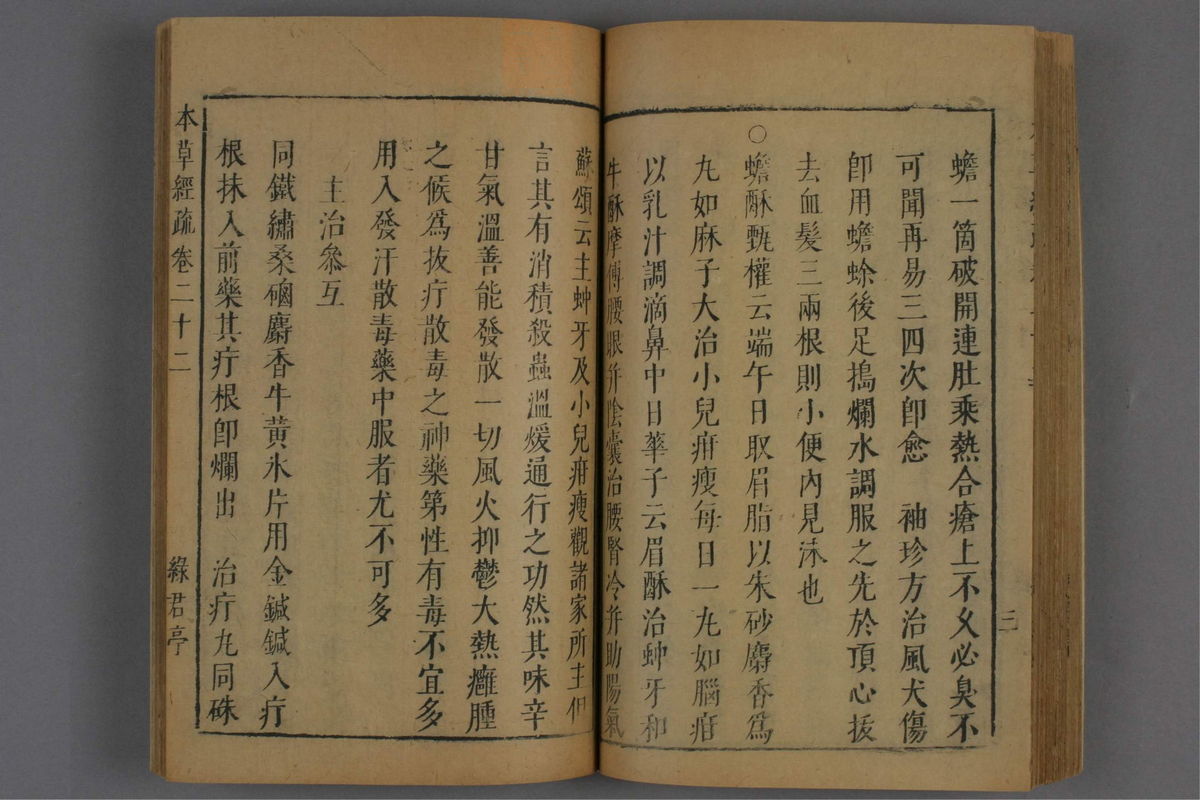 蟾一箇破開連肚乘熱合瘡上不久必臭不
可聞再易三四次卽愈　袖珍方治風犬傷
卽用蟾蜍後足搗爛水調服之先於頂心拔
去血髮三兩根則小便內見沫也
○蟾酥甄權云端午日取眉脂以朱砂麝香爲
丸如麻子大治小兒疳瘦每日一丸如腦疳
以乳汁調滴鼻中日華子云眉酥治蚛牙和
牛酥摩傅腰眼并陰囊治腰腎冷并助陽氣
蘇頌云主蚛牙及小兒疳瘦觀諸家所主但
言其有消積殺蟲溫煖通行之功然其味辛
甘氣溫善能發散一切風火抑鬱大熱癰腫
之候爲拔疔散毒之神藥第性有毒不宜多
用入發汗散毒藥中服者尤不可多
主治叅互
同鐵繡桑硇麝香牛黃氷片用金鍼鍼入疔
根抹入前藥其疔根卽爛出　治疔丸同硃
本草經疏 卷二十二
綠君亭
三